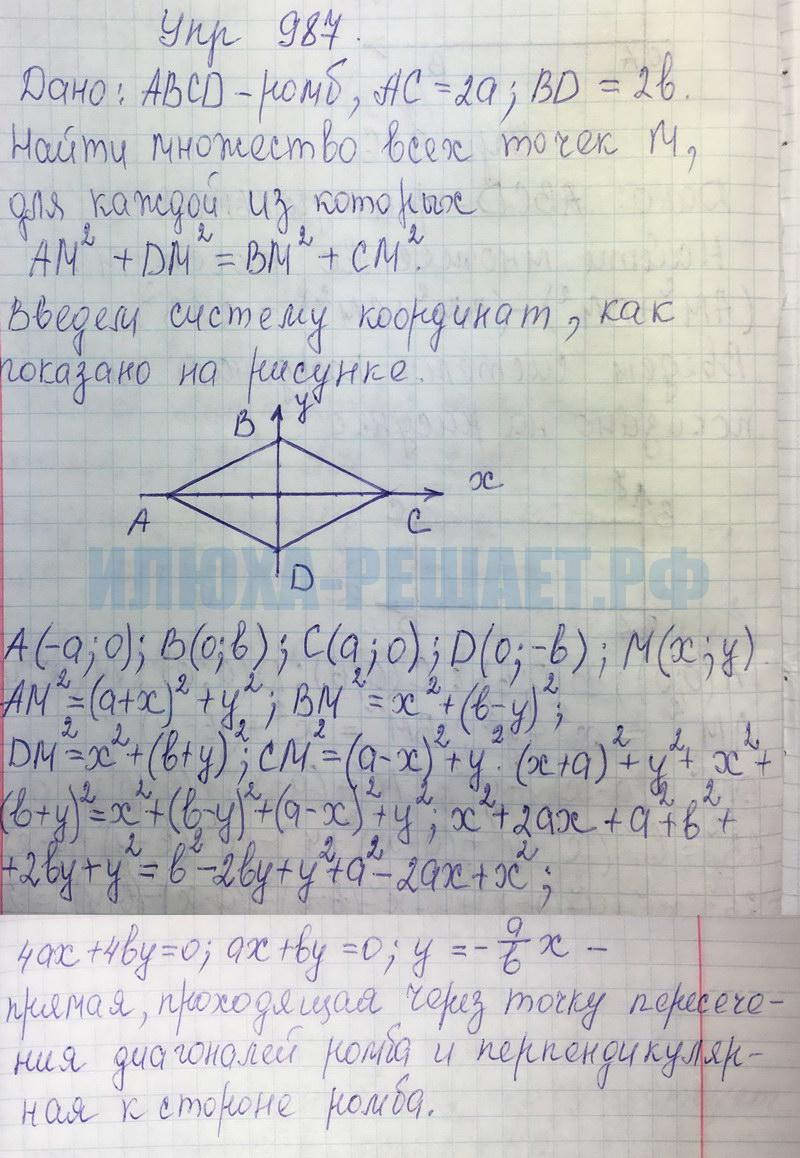 Упр 987.
Дано: ABCD – ромб, AC = 2a; BD = 2b.
Найти множество всех точек M,
для каждой из которых
AM² + DM² = BM² + CM².
Введем систему координат, как
показано на рисунке.
y
B
x
A
C
D
ИЛЮХА-РЕШАЕТ.РФ
A(-a; 0); B(0; b); C(a; 0); D(0; -b); M(x; y)
AM² = (a+x)² + y²; BM² = x² + (b-y)²;
DM² = x² + (b+y)²; CM² = (a-x)² + y². (x+a)² + y² + x² +
(b+y)² = x² + (b-y)² + (a-x)² + y²; x² + 2ax + a² + b² +
+2by + y² = b² - 2by + y² + a² - 2ax + x²;
4ax + 4by = 0; ax + by = 0; y = -a/b x –
прямая, проходящая через точку пересече-
ния диагоналей ромба и перпендикуляр-
ная к стороне ромба.